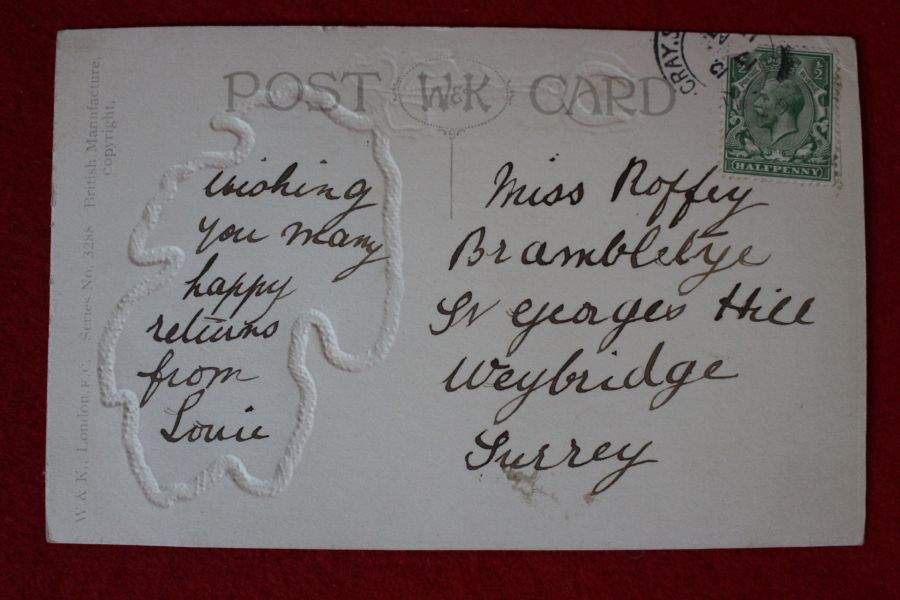 POST W&K CARD
GRAYS
HALFPENNY
wishing
you many
happy
returns
from
Louie
Miss Roffey
Bramblebye
St Georges Hill
Weybridge
Surrey
W & K., London, E.C. Series No. 3288 British Manufacture,
copyright.